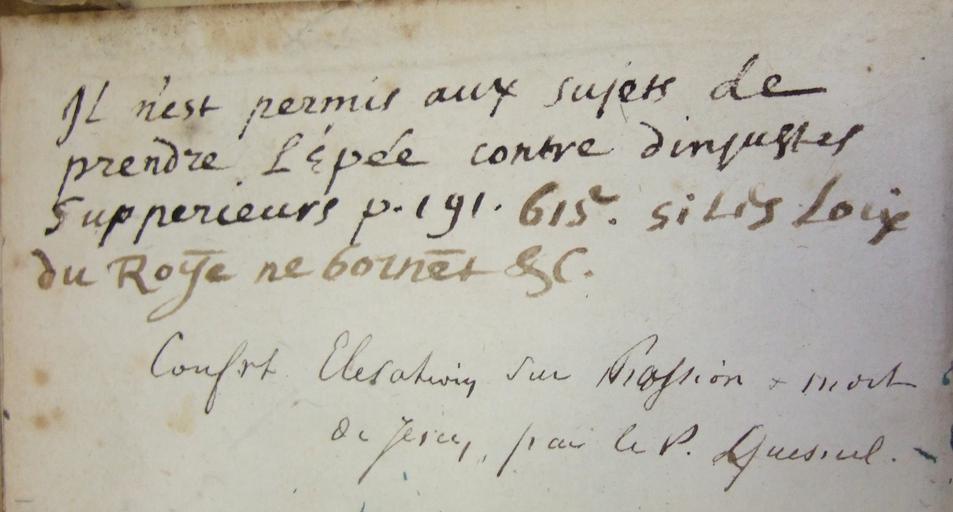 Il n'est permis aux sujets de
prendre L'épée contre dinjustes
Supperieurs p. 191. 615. si les Loix
du Royē ne bornēt &C.
Elevation sur Passion & mort
de Jesus, par le P. Quesnel.